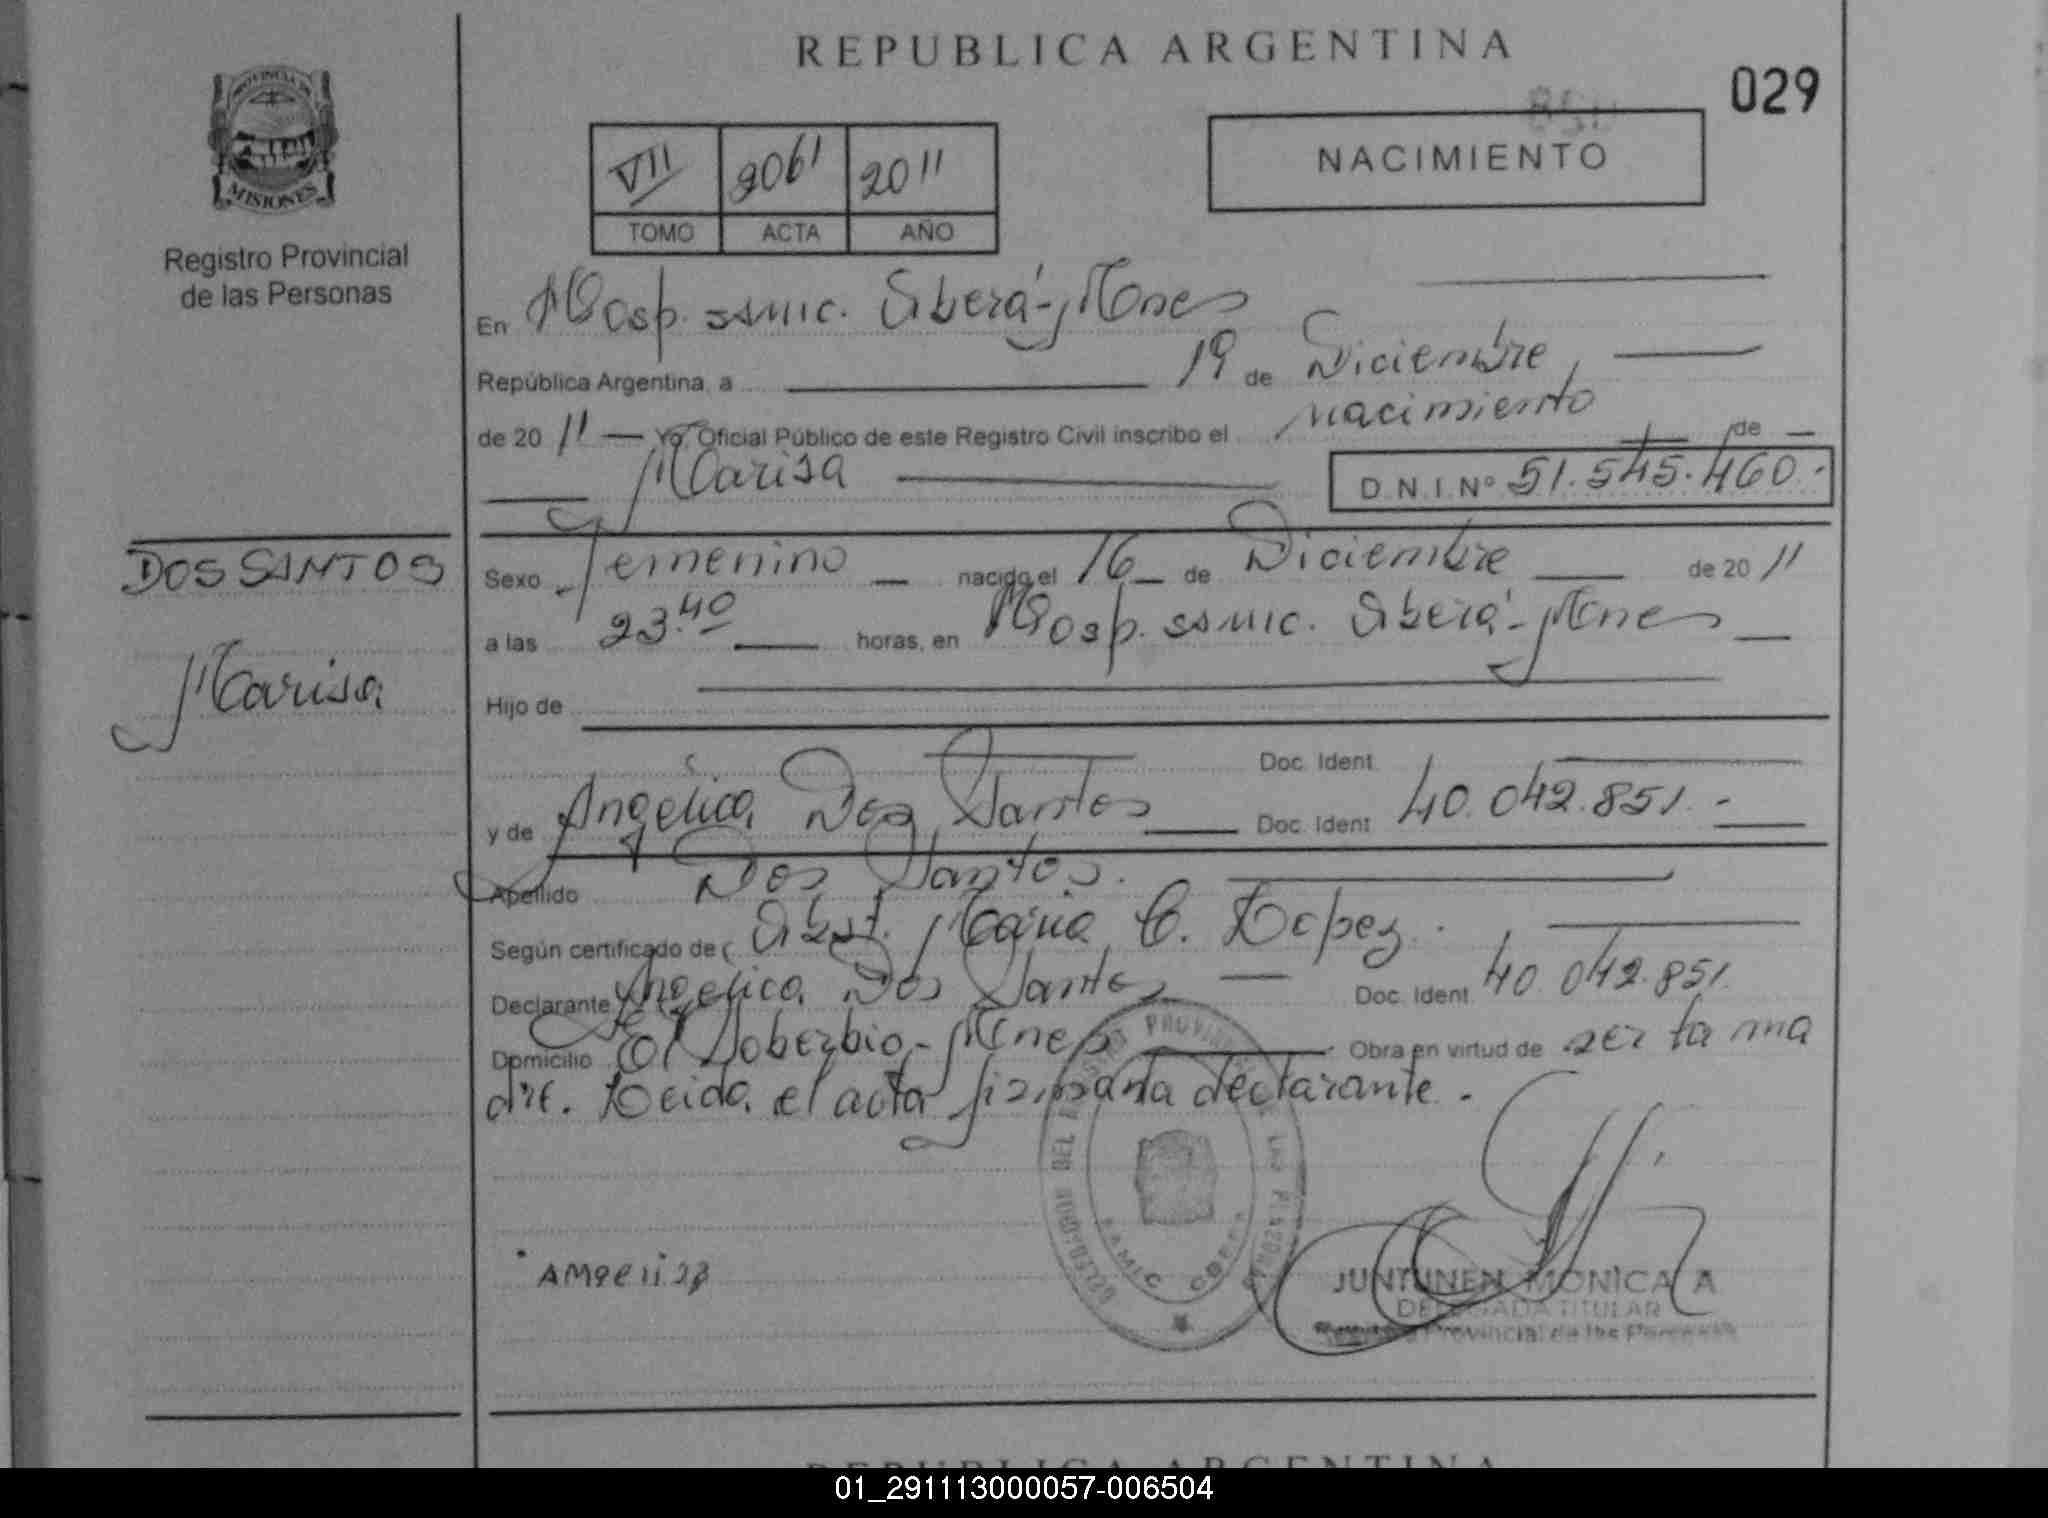 REPUBLICA ARGENTINA
029
PROVINCIA DE
MISIONES
Registro Provincial
de las Personas
VII 2061 2011
TOMO ACTA AÑO
NACIMIENTO
En Hosp. ssmic. Oberá - Mnes
República Argentina, a 19 de Diciembre
de 20 11 Yo, Oficial Público de este Registro Civil inscribo el nacimiento de
Marisa D.N.I. Nº 51.545.460.-
DOS SANTOS
Marisa
Sexo Femenino nacido el 16 de Diciembre de 20 11
a las 23.40 horas, en Hosp. ssmic. Oberá - Mnes
Hijo de
Doc. Ident.
y de Angélica Dos Santos Doc. Ident. 40.042.851.-
Apellido Dos Santos.
Según certificado de Obst. Maria C. Lopez.
Declarante Angélica Dos Santos Doc. Ident. 40.042.851.
Domicilio El Soberbio - Mnes Obra en virtud de ser la ma
dre. Leída el acta firma la declarante.
DELEGACION DEL REGISTRO PROVINCIAL DE LAS PERSONAS
SAMIC OBERA
JUNTUNEN MONICA A
DELEGADA TITULAR
Registro Provincial de las Personas
REPUBLICA ARGENTINA
01_291113000057-006504